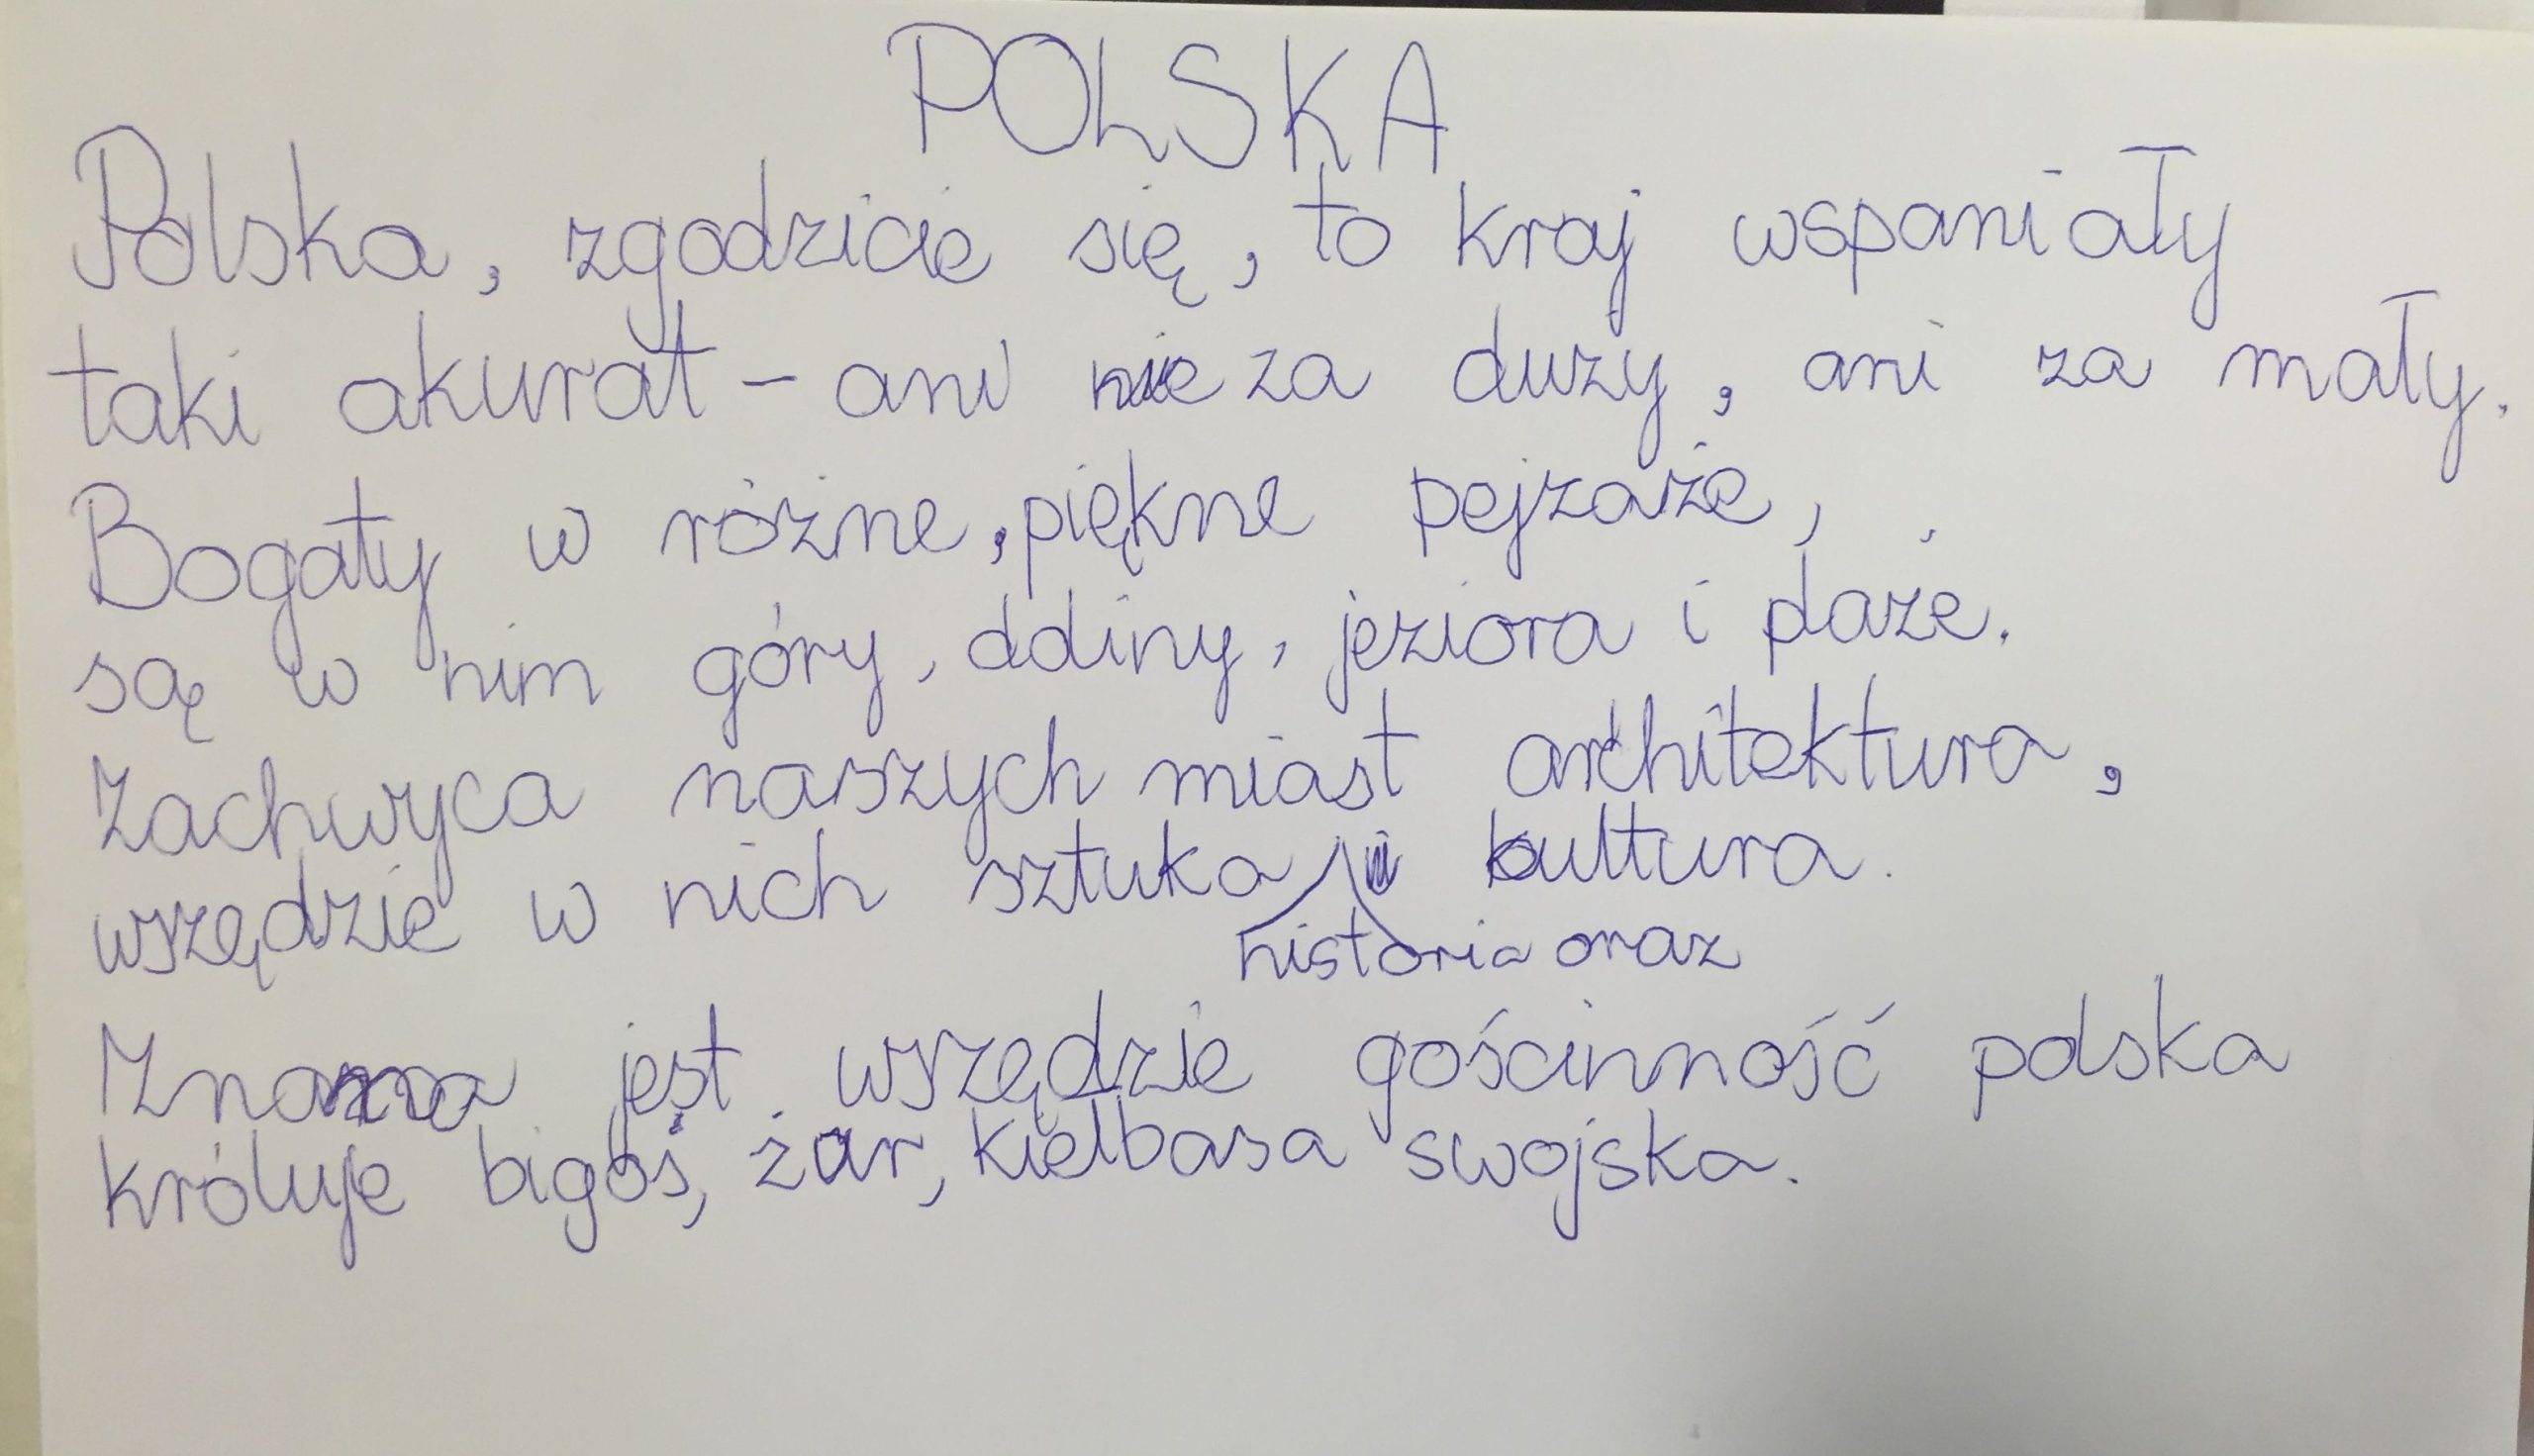 POLSKA
Polska, zgodzicie się, to kraj wspaniały
taki akurat - ani nie za duży, ani za mały.
Bogaty w różne, piękne pejzaże,
są w nim góry, doliny, jeziora i plaże.
Zachwyca naszych miast architektura,
wszędzie w nich sztuka, kultura.
historia oraz
Znana jest wszędzie gościnność polska
króluje bigos, żur, kiełbasa swojska.